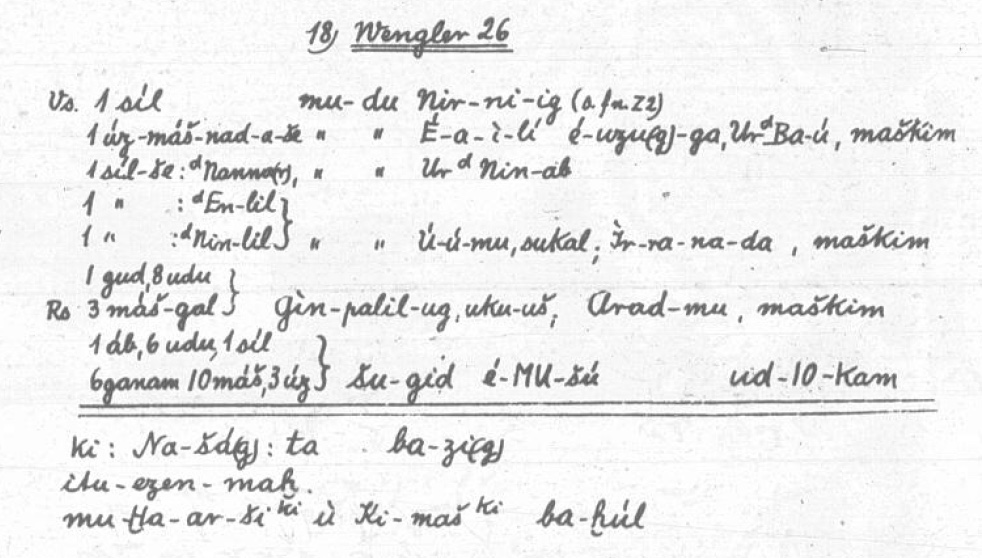 18) Wengler 26
Vs. 1 síl mu-du Nir-ni-ig (o. fn. Z2)
1 úz-máš-nad-a-še " " É-a-ì-lí é-uzu(g)-ga, Ur ᵈBa-ú, maškim
1 síl-še: ᵈNanna(r), " " Ur ᵈ Nin-ab
1 " : ᵈEn-lil}
1 " : ᵈNin-lil} " " Ú-ú-mu, sukal; Ìr-ra-na-da, maškim
1 gud, 8 udu }
Rs 3 máš-gal } Gìn-palil-ug, uku-uš, Arad-mu, maškim
1 áb, 6 udu, 1 síl }
6 ganam 10 máš, 3 úz } šu-gid é-MU-šú ud-10-Kam
Ki: Na-šá(g): ta ba-zi(g)
itu-ezen-maḫ.
mu Ḫa-ar-ši ᵏⁱ ù Ki-maš ᵏⁱ ba-ḫúl